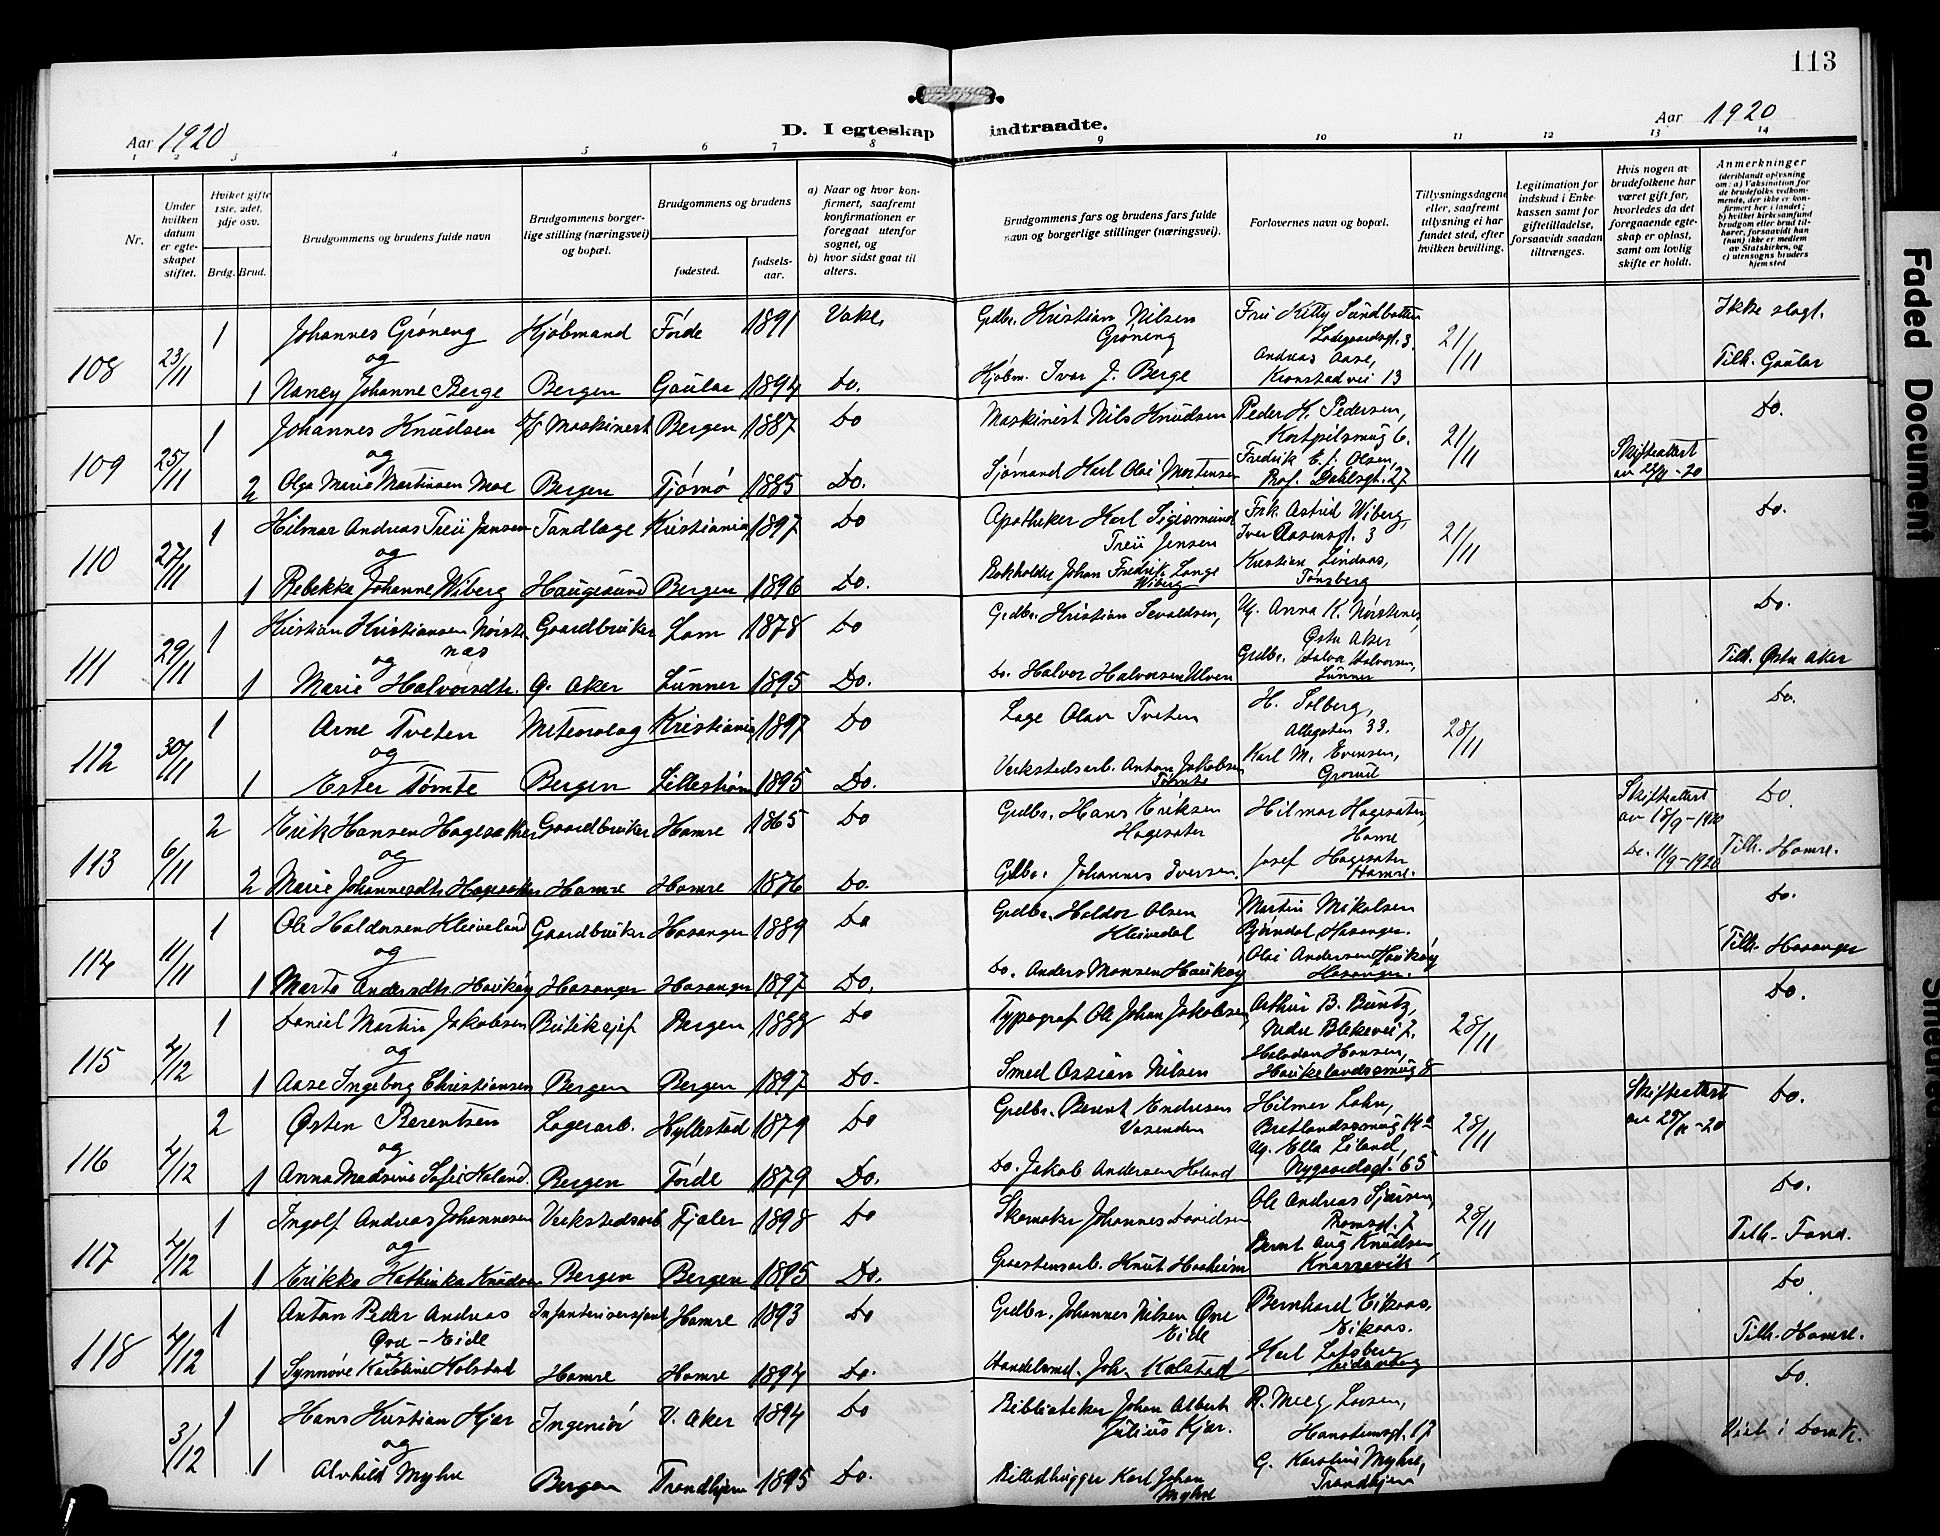 113
Aar 1920
D. I egteskap indtraadte.
Aar 1920
1 2 3 4 5 6 7 8 9 10 11 12 13 14
Nr.
Under hvilken datum er egteskapet stiftet.
Hvilket gifte 1ste, 2det, 3dje osv.
Brdg. Brud.
Brudgommens og brudens fulde navn
Brudgommens borgerlige stilling (næringsvei) og bopæl.
Brudgommens og brudens
fødested. fødselsaar.
a) Naar og hvor konfirmert, saafremt konfirmationen er foregaaet utenfor sognet, og
b) hvor sidst gaat til alters.
Brudgommens fars og brudens fars fulde navn og borgerlige stillinger (næringsvei).
Forlovernes navn og bopæl.
Tillysningsdagene eller, saafremt tillysning ei har fundet sted, efter hvilken bevilling.
Legitimation for indskud i Enkekassen samt for giftetilladelse, forsaavidt saadan tiltrænges.
Hvis nogen av brudefolkene har været gift før, hvorledes da det foregaaende egteskap er opløst, samt om lovlig skifte er holdt.
Anmerkninger (deriblandt oplysning om: a) Vaksination for de brudefolks vedkommende, der ikke er konfirmert her i landet; b) hvilket kirkesamfund brudgom eller brud tilhører, forsaavidt han (hun) ikke er medlem av Statskirken, og c) utensogns bruders hjemsted
108 23/11 1 Johannes Grøneng Kjøbmand Førde 1891 Vaks. Grdbr. Kristian Nilsen Grøneng Fru Kitty Sundbotten Ladegaardsgt. 3 21/11 Ikke slegt.
og Andreas Aase,
1 Nancy Johanne Berge Bergen Gaular 1894 Do. Kjøbm. Ivar J. Berge Kronstadvei 13 Tilh. Gaular
109 25/11 1 Johannes Knudsen Maskinist Bergen 1887 Do Maskinist Nils Knudsen Peder H. Pedersen, 21/11 Do.
og Skifteattest
2 Olga Marie Martinsen Moe Bergen Tjømø 1885 Do. Sjømand Karl Olai Mortensen Fredrik E. Olsen, Prof. Dahlsgt. 27
110 27/11 1 Hilmar Andreas Treu Jensen Tandlæge Kristiania 1897 Do Apotheker Karl Sigismund Treu Jensen Frk. Astrid Wiberg, Iver Aasensgt. 3 21/11 Do.
og
1 Rebekka Johanne Wiberg Haugesund Bergen 1896 Do. Bokholder Johan Fredrik Lange Wiberg Kristian Lindaas, Tønsberg
111 29/11 1 Kristian Kristiansen Nørstenæs Gaardbruker Lom 1878 Do Grdbr. Kristian Sevaldsen, Ug. Anna K. Nørstenes, Østre Aker Do.
og
1 Marie Halvorsdtr. Ø. Aker Lunner 1895 Do. Do. Halvor Halvorsen Ulven Grdbr. Halvor Halvorsen, Lunner Tilh. Østre Aker
112 30/11 1 Arne Tveten Meteorolog Kristiania 1897 Do Læge Olav Tveten H. Solberg, Allegaten 33. 28/11 Do.
og
1 Ester Tømte Bergen Lillestrøm 1895 Do. Verkstedsarb. Anton Jakobsen Tømte Karl M. Evensen, Grorud
113 6/11 2 Erik Hansen Hagesæter Gaardbruker Hamre 1865 Do Grdbr. Hans Eriksen Hagesæter Hilmar Hagesæter, Hamre Skifteattest av 18/9-1920 Do
og
2 Marie Johannesdtr. Hagesæter Hamre Hamre 1876 Do. Grdbr. Johannes Iversen. Josef Hagesæter Hamre. Do. 11/9-1920 Tilh. Hamre.
114 11/11 1 Ole Haldorsen Kleiveland Gaardbruker Hosanger 1889 Do Grdbr. Haldor Olsen Kleivedal Martin Mikalsen Bjørndal Hosanger. Do.
og
1 Marta Andersdtr. Haukøy Hosanger Hosanger 1897 Do. Do. Anders Monsen Haukøy Olai Andersen Haukøy Hosanger. Tilh. Hosanger
115 4/12 1 Daniel Martin Jakobsen Butiksjef Bergen 1888 Do Typograf Ole Johan Jakobsen Arthur B. Buntz, Nedre Blekevei 7. 28/11 Do.
og
1 Aase Ingeborg Christiansen Bergen Bergen 1897 Do. Smed Ossian Nilsen Halvdan Hansen, Haukelandssmug 8
116 4/12 2 Østen Berentsen Lagerarb. Hyllestad 1879 Do Grdbr. Berent Endresen Vasenden Hilmer Lohn, 28/11 Skifteattest Do.
og
1 Anna Madsine Sofie Høland Bergen Førde 1879 Do. Do. Jakob Andersen Høland Ug. Ella Eiland, Nygaardsgt. 65
117 4/12 1 Ingolf Andreas Johannesen Verkstedsarb Fjaler 1898 Do Skomaker Johannes Davidsen Ole Andreas 28/11 Do.
og
1 Erikka Kathinka Knudsen Bergen Bergen 1895 Do. Graastensarb. Knut Haaheim Bernt Aug Knudsen, Knarrevik Tilh. Fana.
118 4/12 1 Anton Peder Andreas Øvre-Eide Infanterisersjant Hamre 1893 Do Grdbr. Johannes Nilsen Øvre Eide Bernhard Eikaas, Eikaas. Do
og
1 Synnøve Karoline Kolstad Hamre Hamre 1894 Do. Handelsmd. Joh. Kolstad Karl Tilh. Hamre.
3/12 1 Hans Kristian Kjær Ingeniør V. Aker 1894 Do Biblioteker Johan Albert Julius Kjær. R. Meeg Larsen, Hansteensgt. 17 Do.
og
1 Alvhild Myhre Bergen Trondhjem 1895 Do. Billedhugger Karl Johan Myhre G. Karolius Myhre, Trondhjem Viet i Domk.
Faded Document